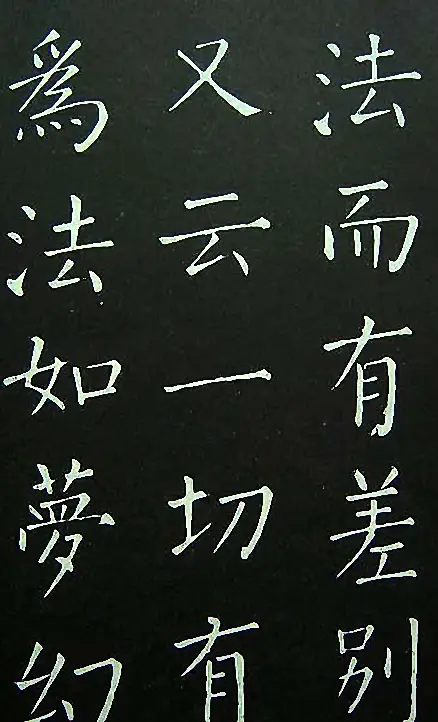 法而有差别
又云一切有
爲法如夢幻